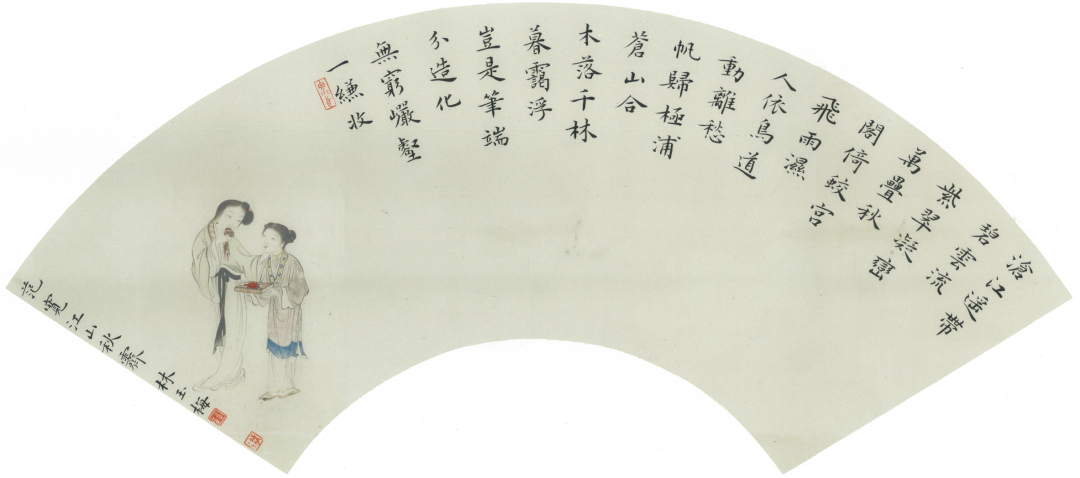 滄江遥帶
碧雲流
紫翠凝巒
萬疊秋
閣倚蛟宮
飛雨濕
人依鳥道
動離愁
帆歸極浦
蒼山合
木落千林
暮靄浮
豈是筆端
分造化
無窮巖壑
一縑收
范寬江山秋霽 林玉梅